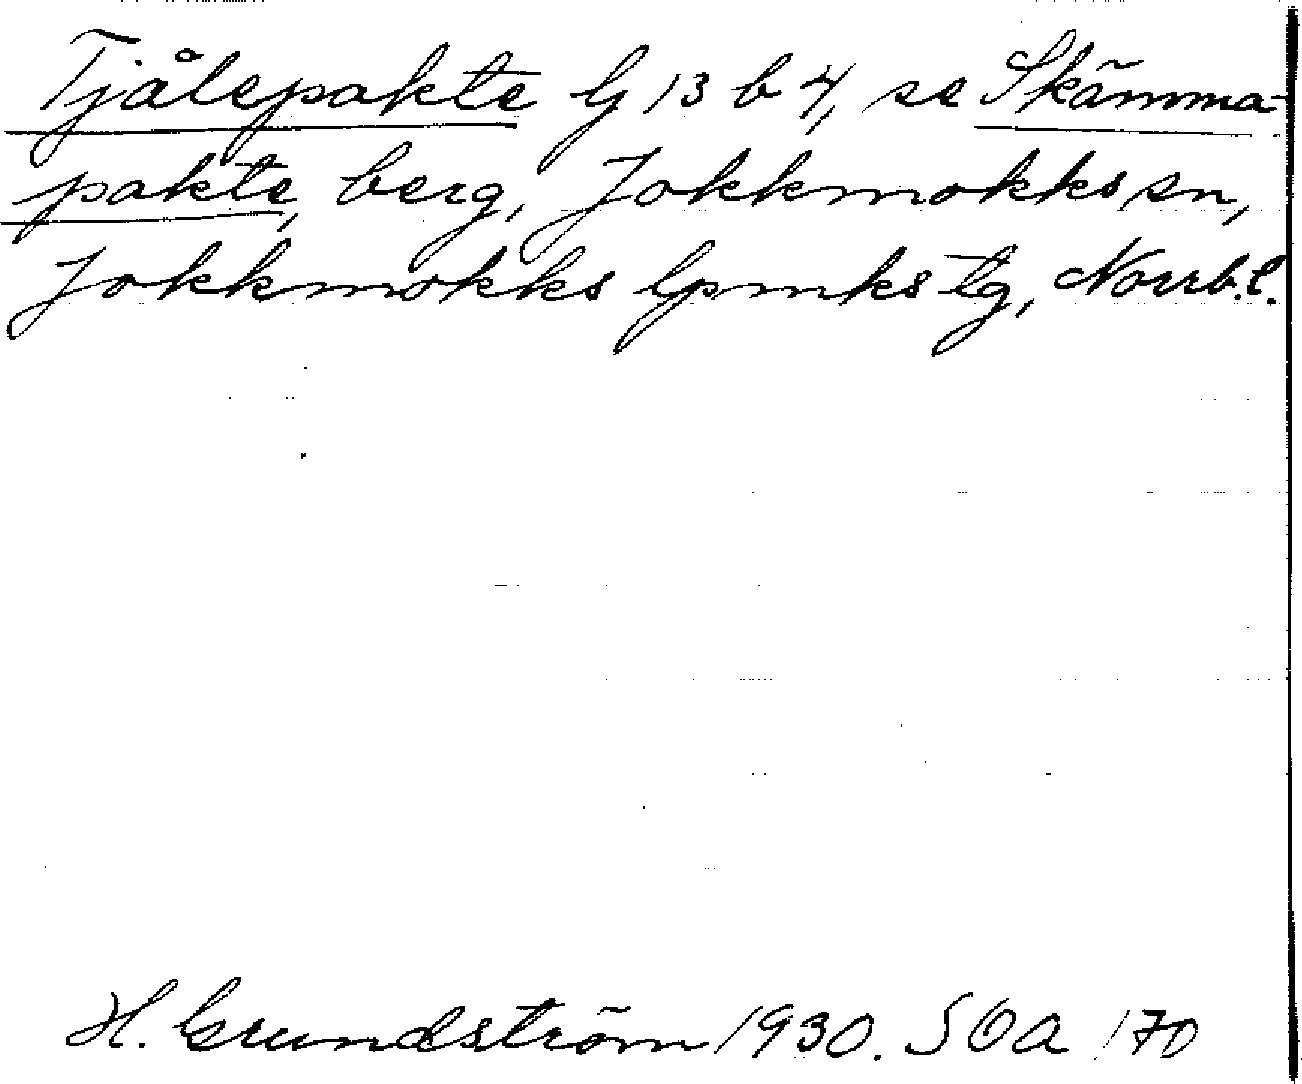 Tjålepakte G 13 b 4, se Skämma-
pakte, berg, Jokkmokks sn,
Jokkmokks lpmks tg, Norrb.l.
H. Grundström 1930. SOA 170